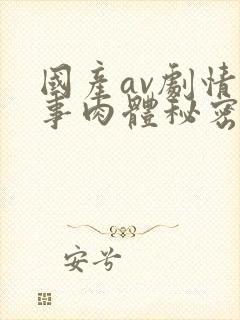 國產av劇情
事肉體秘密
安兮